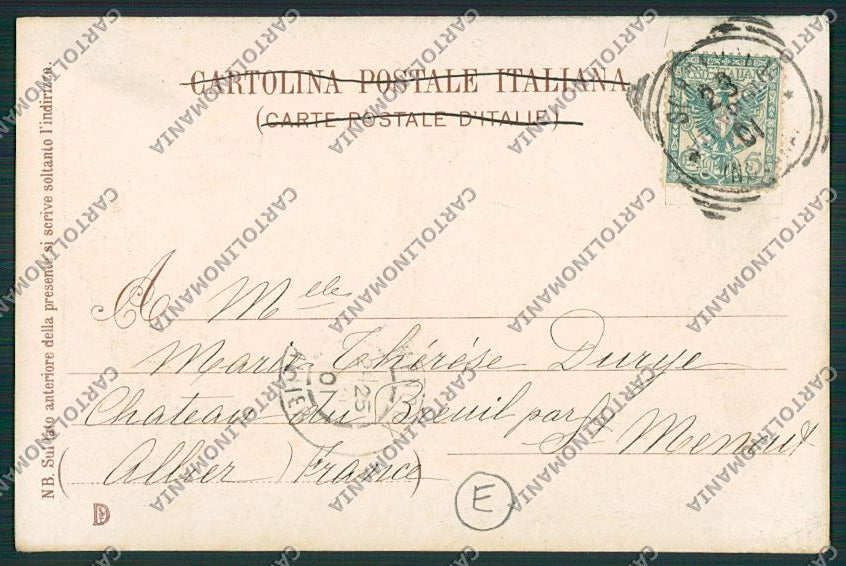 CARTOLINA POSTALE ITALIANA
(CARTE POSTALE D'ITALIE)
NB. Sul lato anteriore della presente si scrive soltanto l'indirizzo.
23
01
5
A Melle
Marie Thérèse Durye
Chateau du Breuil par St Menoux
(Allier) France)
25
01
ALLIER
E
D
CARTOLINOMANIA